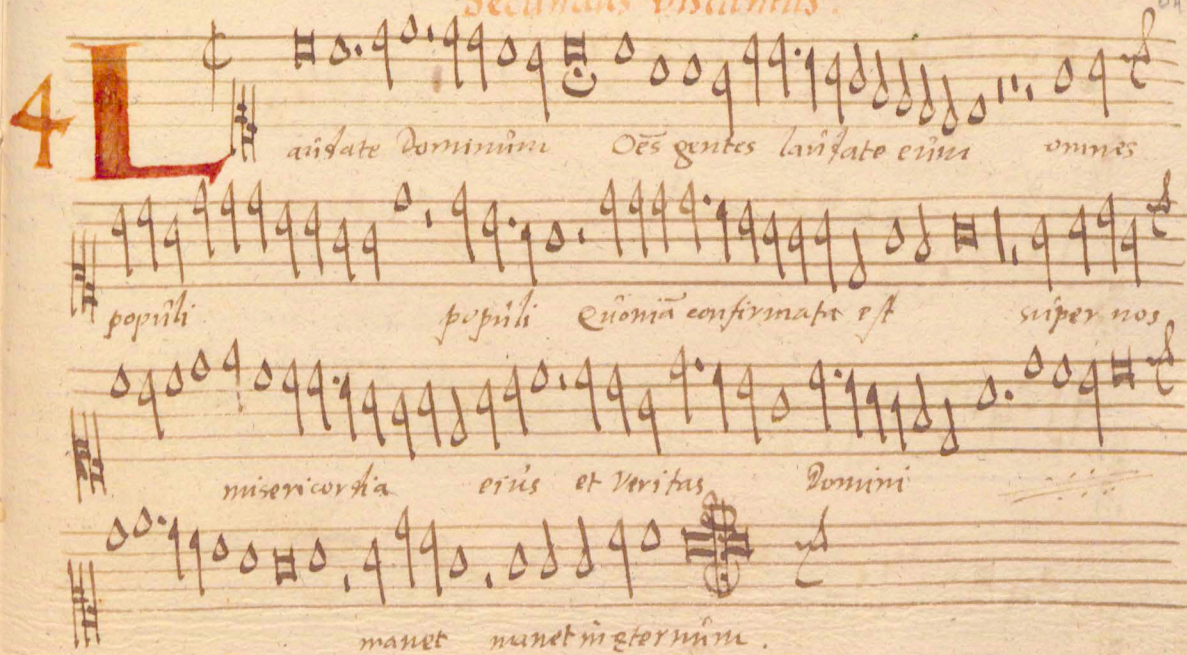 Secundus Discantus.
4
Laudate Dominum Oēs gentes laudate eum omnes
populi populi Quoniā confirmata est super nos
misericordia eius et Veritas Domini
manet manet in ęternum.